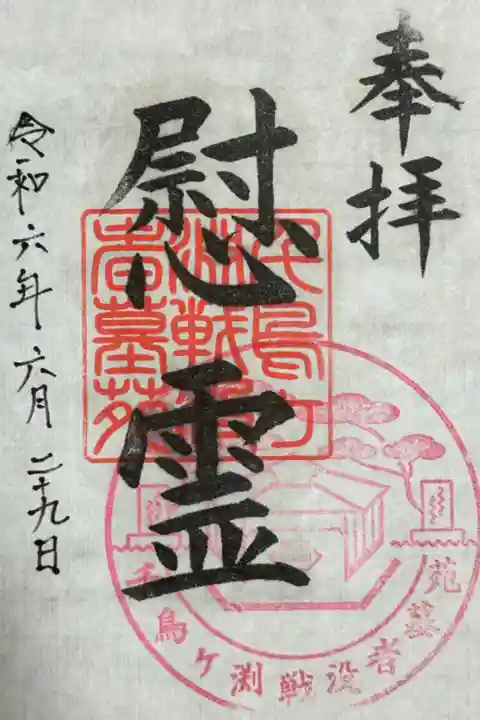 奉拝
慰霊
千鳥ケ
淵戦没
者墓苑
千鳥ケ淵戦没者墓苑
令和六年六月二十九日